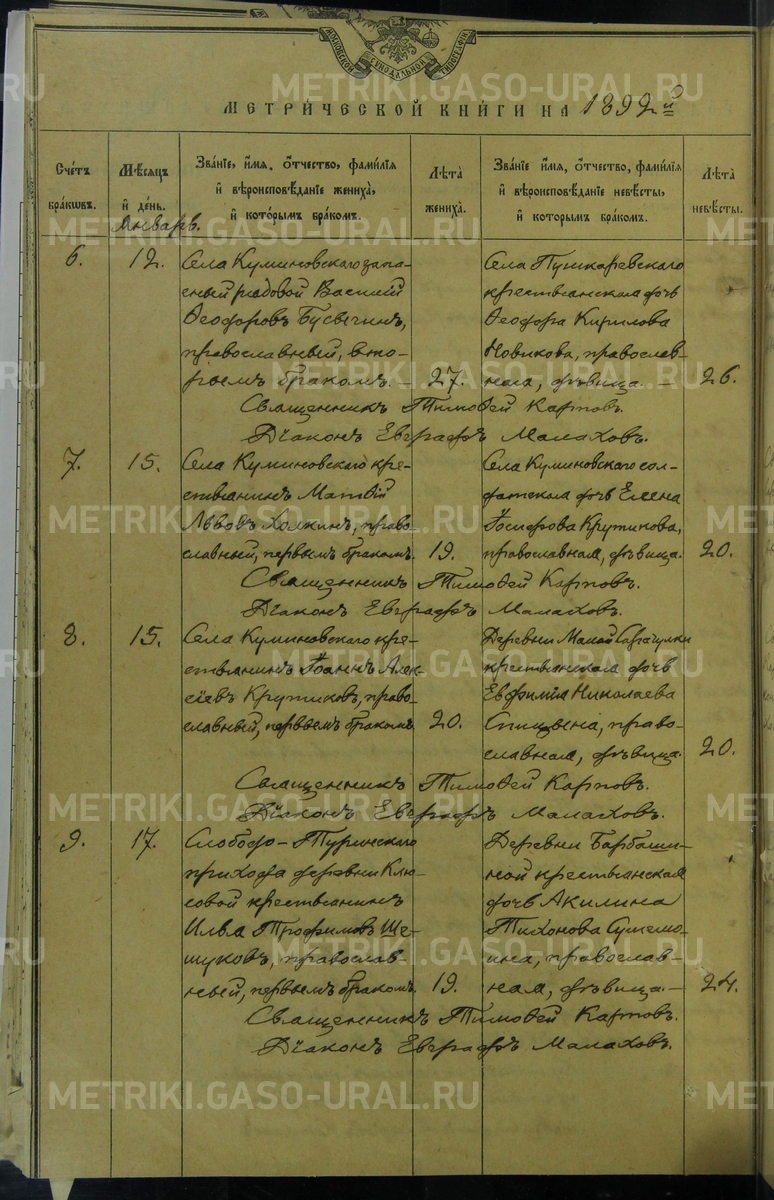 МОСКОВСКОЙ СѴНОДАЛЬНОЙ ТИПОГРАФІИ
МЕТРИЧЕСКОЙ КНИГИ НА 1892й
Счетъ браковъ.
Мѣсяцъ и день.
Званіе, имя, отчество, фамилія и вѣроисповѣданіе жениха, и которымъ бракомъ.
Лѣта жениха.
Званіе имя, отчество, фамилія и вѣроисповѣданіе невѣсты, и которымъ бракомъ.
Лѣта невѣсты.
Январь.
6. 12.
Села Куминовскаго запа-
сный рядовой Василій
Ѳеодоровъ
православный, вто-
рымъ бракомъ. — 27.
Села Пушкаревскаго
крестьянская дочь
Ѳеодора Кирилова
Новикова, православ-
ная, дѣвица. — 26.
Священникъ Тимоѳей Карповъ.
Діаконъ Евграфъ Малаховъ.
7. 15.
Села Куминовскаго кре-
стьянинъ Матѳій
Львовъ Холкинъ, право-
славный, первымъ бракомъ. 19.
Села Куминовскаго сол-
датская дочь Елена
Іосифова Крутикова,
православная, дѣвица. 20.
Священникъ Тимоѳей Карповъ.
Діаконъ Евграфъ Малаховъ.
8. 15.
Села Куминовскаго кре-
стьянинъ Іоаннъ Алек-
сіевъ Крутиковъ, право-
славный, первымъ бракомъ 20.
Деревни Малой Сарагулки
крестьянская дочь
Евфимія Николаева
Спицына, право-
славная, дѣвица. 20.
Священникъ Тимоѳей Карповъ.
Діаконъ Евграфъ Малаховъ.
9. 17.
Слободо-Туринскаго
прихода деревни Клю-
совой крестьянинъ
Илья Трофимовъ Ше-
шуковъ, православ-
ный, первымъ бракомъ. 19.
Деревни Барбаши-
ной крестьянская
дочь Акилина
Тихонова
православ-
ная, дѣвица. — 24.
Священникъ Тимоѳей Карповъ.
Діаконъ Евграфъ Малаховъ.
METRIKI.GASO-URAL.RU